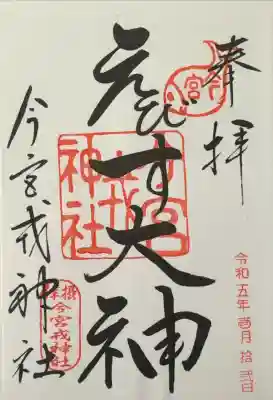 奉拝
令和五年壱月拾弐日
ゑびす大神
今宮戎神社
今宮戎神社
摂津 今宮戎神社